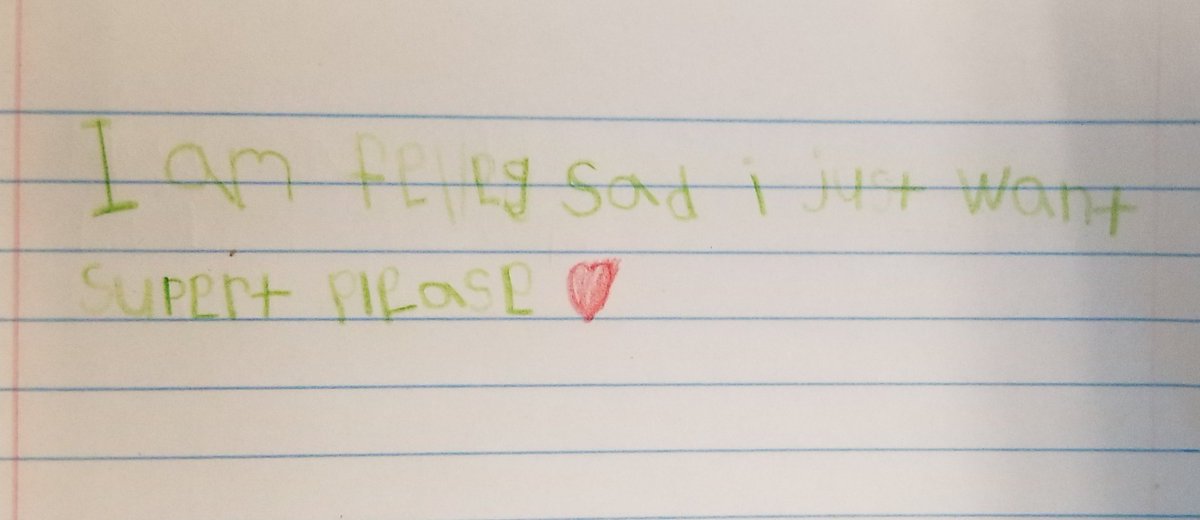 I am felleg sad i just want
supert please ❤